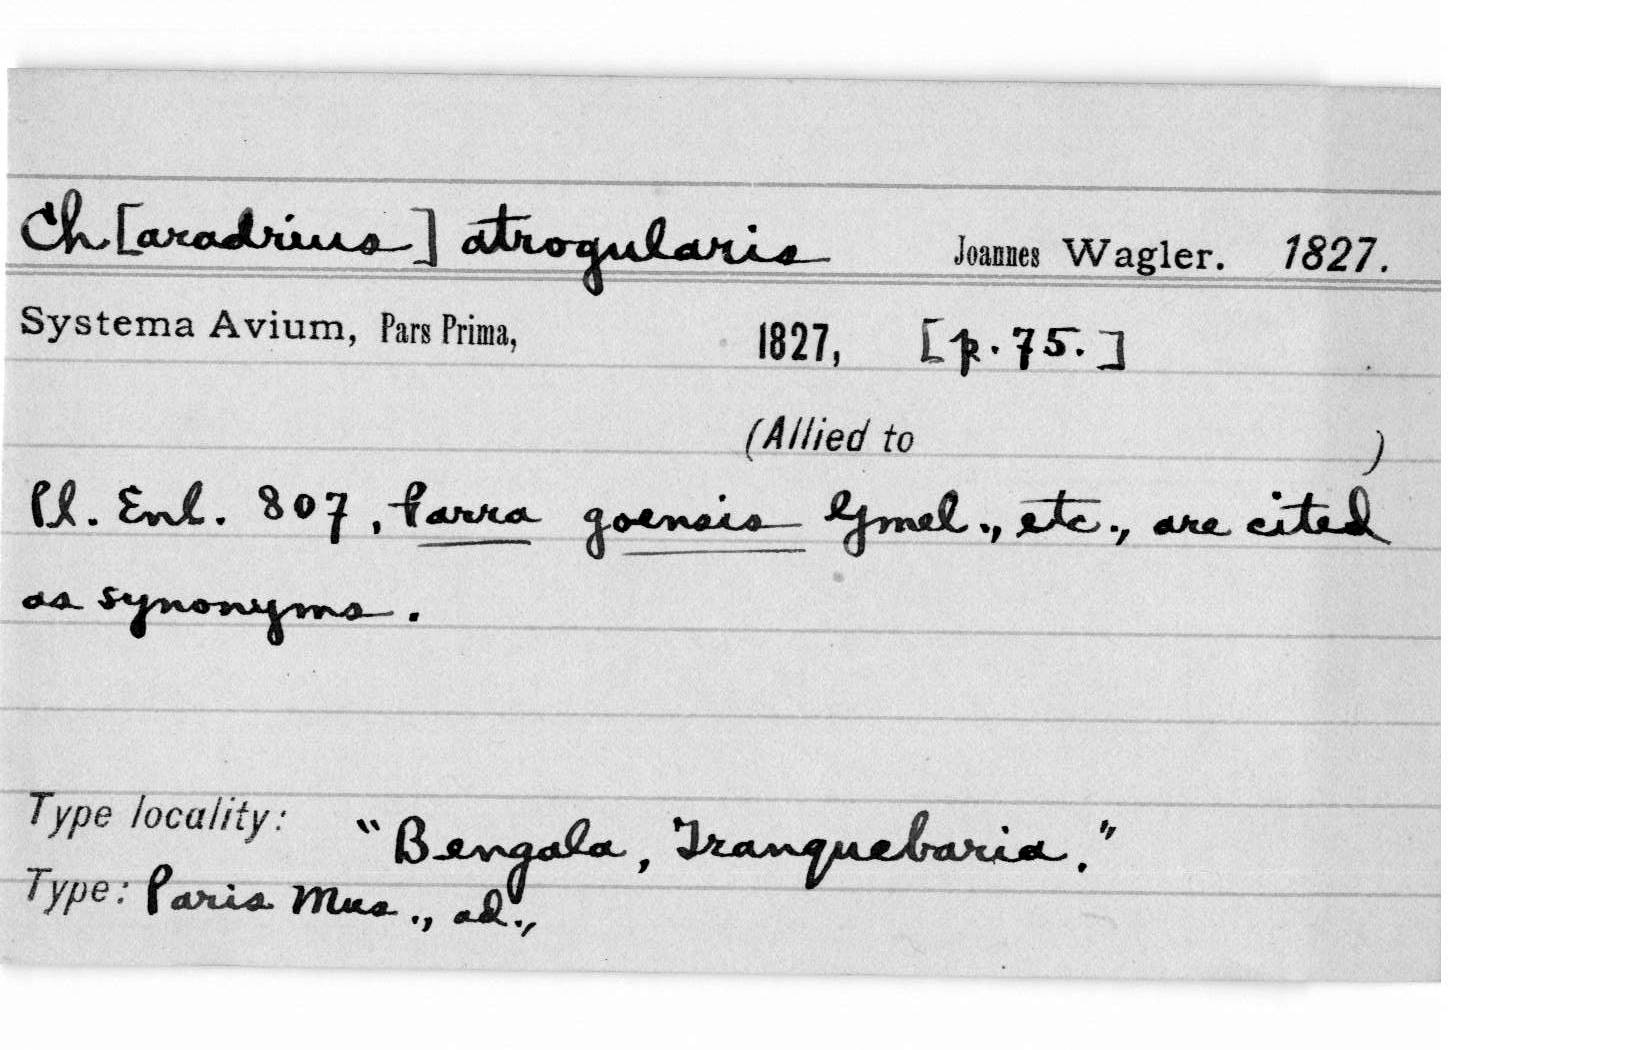 Ch[aradrius] atrogularis Joannes Wagler. 1827.
Systema Avium, Pars Prima, 1827, [p. 75.]
(Allied to )
Pl. Enl. 807, Parra goensis Gmel., etc., are cited
as synonyms.
Type locality: "Bengala, Tranquebaria."
Type: Paris Mus., ad.,